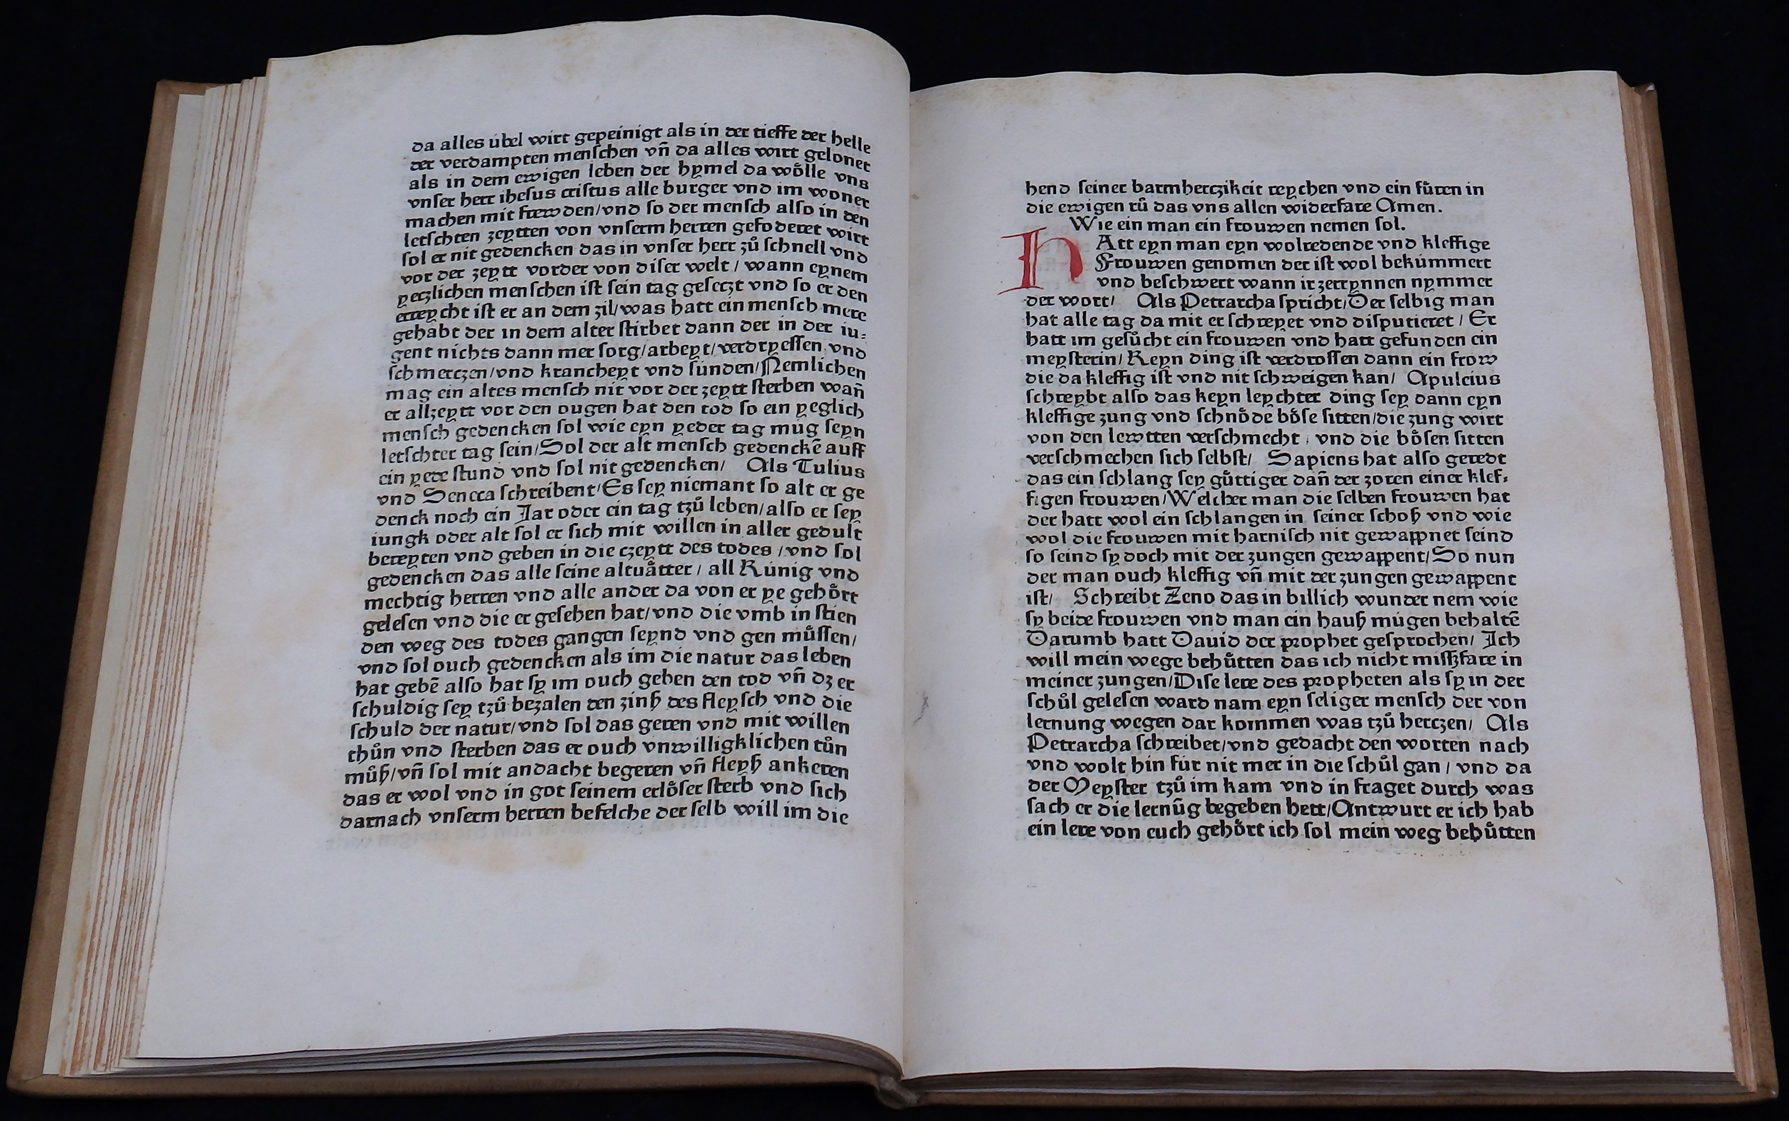 da alles übel wirt gepeinigt als in der tieffe der helle
der verdampten menschen vñ da alles wirt gelonet
als in dem ewigen leben der hymel da wölle vns
vnser herr ihesus cristus alle burger vnd im woner
machen mit frewden/vnd so der mensch also in den
letschten zeytten von vnserm herren gefoderet wirt
sol er nit gedencken das in vnser herr zů schnell vnd
vor der zeytt vorder von diser welt / wann eynem
yeczlichen menschen ist sein tag geseczt vnd so er den
erreycht ist er an dem zil/was hatt ein mensch mere
gehabt der in dem alter stirbet dann der in der iu-
gent nichts dann mer sorg/arbeyt/verdryessen vnd
schmerczen/vnd kranckeyt vnd sunden/Nemlichen
mag ein altes mensch nit vor der zeytt sterben wañ
er allzeytt vor den ougen hat den tod so ein yeglich
mensch gedencken sol wie eyn yeder tag mug seyn
letschter tag sein/Sol der alt mensch gedenckē auff
ein yede stund vnd sol nit gedencken/ Als Tulius
vnd Seneca schreibent/Es sey niemant so alt er ge
denck noch ein Jar oder ein tag tzů leben/also er sey
iungk oder alt sol er sich mit willen in aller gedult
bereyten vnd geben in die czeytt des todes /vnd sol
gedencken das alle seine altuåtter / all Künig vnd
mechtig herren vnd alle ander da von er ye gehört
gelesen vnd die er gesehen hat/vnd die vmb in stien
den weg des todes gangen seynd vnd gen müssen/
vnd sol ouch gedencken als im die natur das leben
hat gebē also hat sy im ouch geben den tod vñ dz er
schuldig sey tzů bezalen den zinß des fleysch vnd die
schuld der natur/vnd sol das geren vnd mit willen
thůn vnd sterben das er ouch vnwilligklichen tůn
můß/vñ sol mit andacht begeren vñ fleyß ankeren
das er wol vnd in got seinem erlöser sterb vnd sich
darnach vnserm herren befelche der selb will im die
hend seiner barmherczikeit reychen vnd ein füren in
die ewigen rů das vns allen widerfare Amen.
Wie ein man ein frouwen nemen sol.
HAtt eyn man eyn wolredende vnd kleffige
Frouwen genomen der ist wol bekümmert
vnd beschwert wann ir zerrynnen nymmer
der wort/ Als Petrarcha spricht/Der selbig man
hat alle tag da mit er schreyet vnd disputieret / Er
hatt im gesůcht ein frouwen vnd hatt gefunden ein
meysterin/Keyn ding ist verdrossen dann ein frow
die da kleffig ist vnd nit schweigen kan/ Apuleius
schreybt also das keyn leychter ding sey dann eyn
kleffige zung vnd schnöde böse sitten/die zung wirt
von den lewtten verschmecht / vnd die bösen sitten
verschmechen sich selbst/ Sapiens hat also geredt
das ein schlang sey güttiger dañ der zoren einer klef-
figen frouwen/Welcher man die selben frouwen hat
der hatt wol ein schlangen in seiner schoß vnd wie
wol die frouwen mit harnisch nit gewappnet seind
so seind sy doch mit der zungen gewappent/So nun
der man ouch kleffig vñ mit der zungen gewappent
ist/ Schreibt Zeno das in billich wunder nem wie
sy beide frouwen vnd man ein hauß mugen behaltē
Darumb hatt Dauid der prophet gesprochen/ Ich
will mein wege behütten das ich nicht mißfare in
meiner zungen/Dise lere des propheten als sy in der
schůl gelesen ward nam eyn seliger mensch der von
lernung wegen dar kommen was tzů herczen/ Als
Petrarcha schreibet/vnd gedacht den worten nach
vnd wolt hin für nit mer in die schůl gan / vnd da
der Meyster tzů im kam vnd in fraget durch was
sach er die lernũg begeben hett/Antwurt er ich hab
ein lere von euch gehört ich sol mein weg behütten